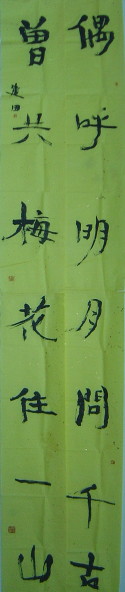 偶呼明月問千古
曾共梅花住一山